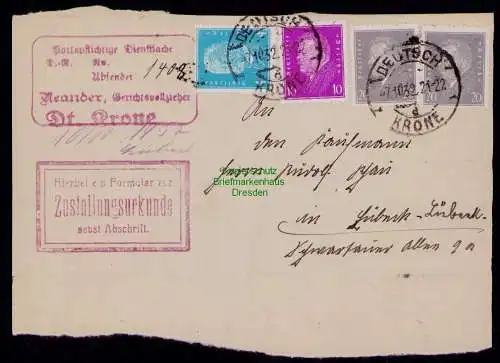 Portopflichtige Dienstsache
D.-R. No. 1409
Absender
Neander, Gerichtsvollzieher
Dt. Krone
Hierbei ein Formular zur
Zustellungsurkunde
nebst Abschrift.
DEUTSCH
KRONE
10
DEUTSCH
-7.10.32.21-22
d
KRONE
20
20
An
den Kaufmann
Herrn Rudolf
in Lübeck-Lübeck
Schwartauer Allee 9a
Briefmarkenhaus
Dresden